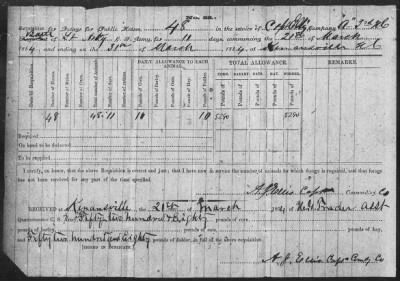 No. 33.
Requisition for Forage for Public Horses, 48 in the service of Capt Ellis Company A 3rd NC
Light Arty C. S. Army, for 11 days, commencing the 21st of March
1864, and ending on the 31st of March 1864, at Kenansville N. C.
DAILY ALLOWANCE TO EACH ANIMAL. TOTAL ALLOWANCE. REMARKS.
Number of Horses. Number of Mules. Number of Days. Pounds of Corn. Pounds of Barley. Pounds of Oats. Pounds of Hay. Pounds of Fodder. CORN. BARLEY. OATS. HAY. FODDER.
Pounds of Pounds of Pounds of Pounds of Pounds of
48 48 11 10 10 5280 5280
Required
On hand to be deducted
To be supplied
I certify, on honor, that the above Requisition is correct and just; that I have now in service the number of animals for which forage is required, and that forage has not been received for any part of the time specified.
A. J. Ellis Capt Commanding Co
RECEIVED AT Kenansville the 21st of March 1864, of
Quartermaster C. S. Fifty two hundred & Eighty pounds of corn,
pounds of barley, pounds of oats, pounds of hay,
and Fifty two hundred and Eighty pounds of fodder, in full of the above requisition.
[SIGNED IN DUPLICATE.]
A. J. Ellis Capt Comdg Co